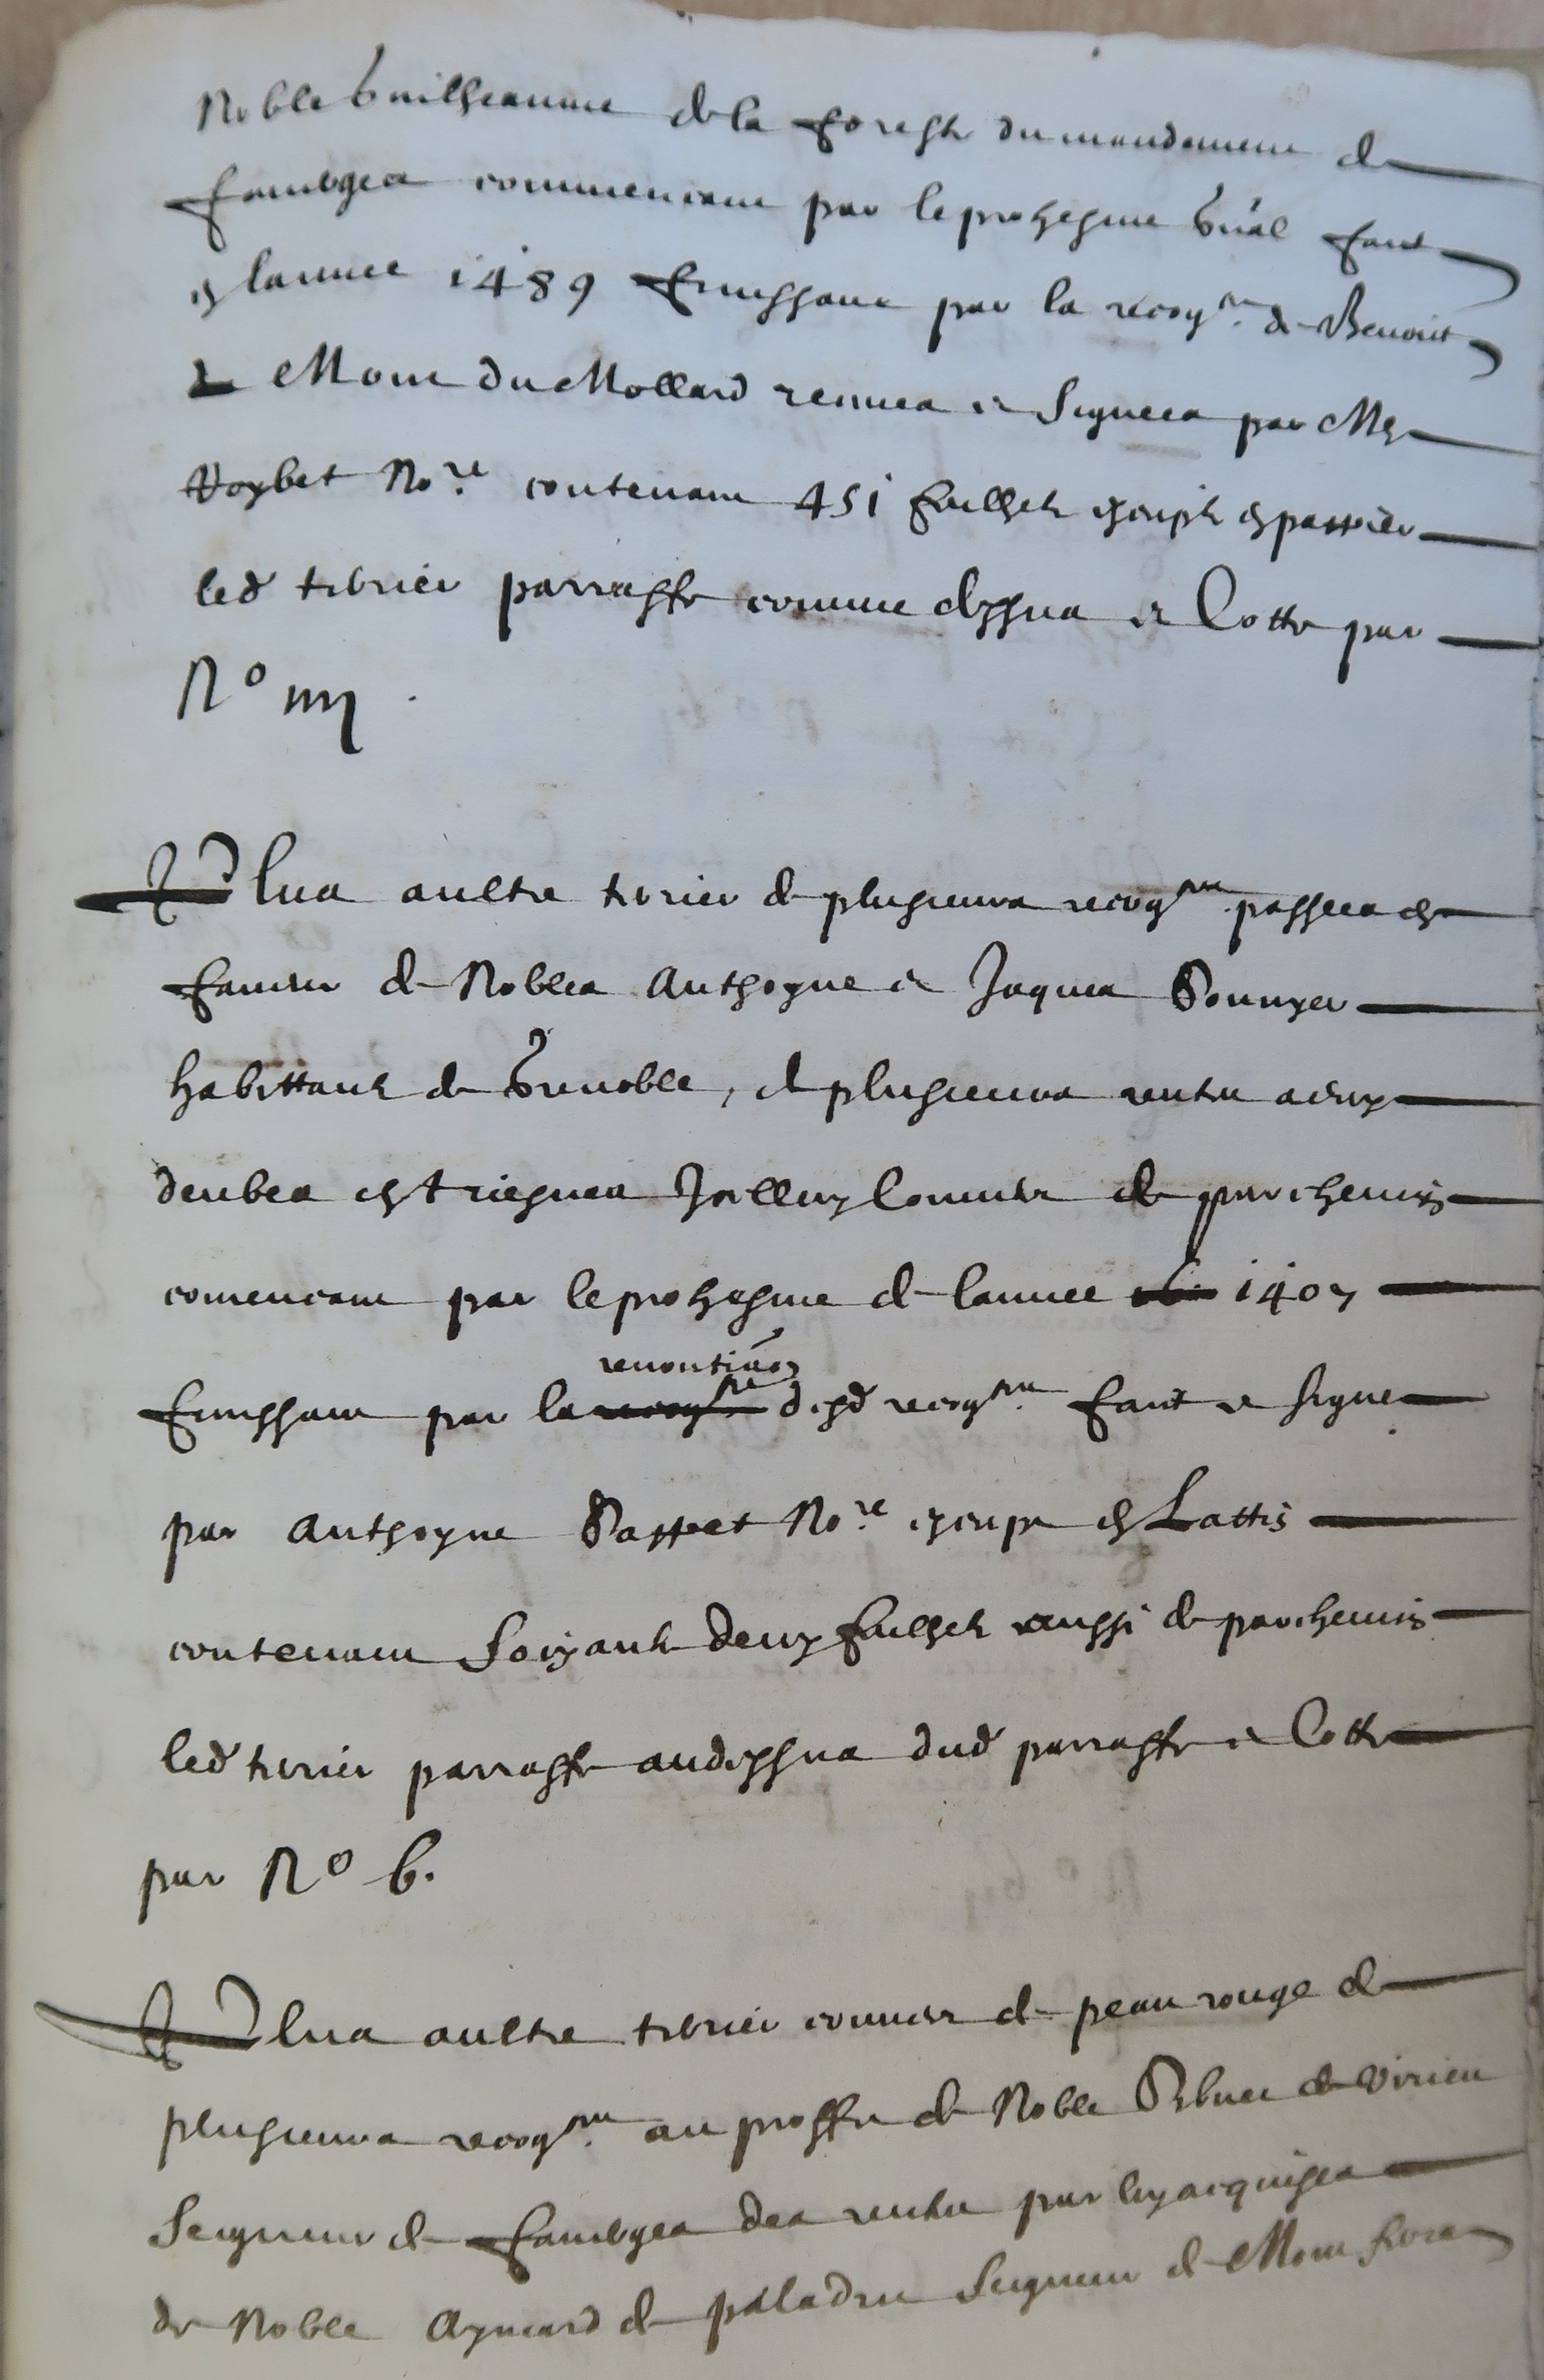 Noble Guilheaume de la Forestz du mandement de
Faverges commencant par le prohesme g'nal faict
en lannee 1489 finissant par la recog.on de Benoict
de Mont du Mollard receues et signees par Me
Voybet No.re contenant 451 feulhetz escriptz en pappier
led terrier parraffe comme dessus et Cotte par
No iiij
Plus aultre terrier de plusieurs recog.ons passees en
faveur de Nobles Anthoyne et Jaques Bonnyer
habittantz de Grenoble, de plusieurs rentes a eux
deubes en Triesves Jcelluy Couvert de parchemin
comencant par le prohesme de lannee 1407
finissant par la renontia'on desd recog.ons faict et signe
par Anthoyne Passet No.re escript en Lattin
contenant Soixante deux feulhetz aussi de parchemin
led terrier parraffe au dessus dud parraffe et Cotte
par No b.
Plus aultre terrier couvert de peau rouge de
plusieurs recog.ons au proffit de Noble de Virieu
Seigneur de Faverges des rentes par luy acquises
de Noble Aymard de paladru Seigneur de Mont